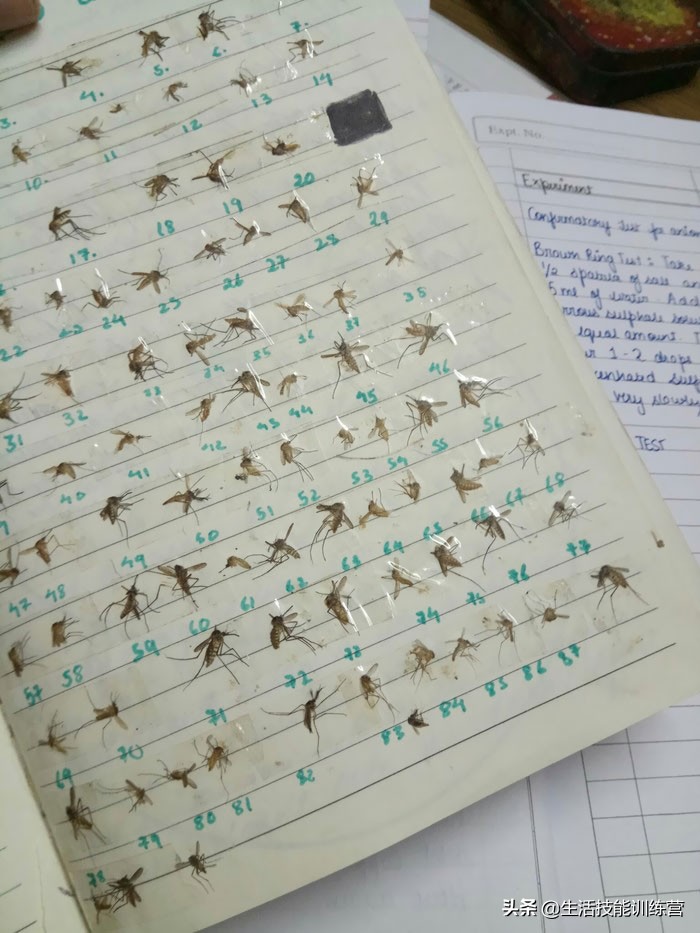 3. 4. 5. 6. 7.
10. 11 12 13 14
17. 18 19 20
22 23 24 25 26 27 28 29
31 32 33 34 35 36 37 35
40 41 42 43 44 45 46
47 48 49 50 51 52 53 54 55 56
57 58 59 60 61 62 63 64 65 66 67 68
69 70 71 72 73 74 75 76 77
78 79 80 81 82 83 84 85 86 87
Expt. No.
Experiment
Confirmatory Test for anion
Brown Ring Test : Take
1/2 spatula of salt an
5 ml of water. Add
rrous sulphate solu
equal amount. T
1-2 drops
very slowly
TEST
头条 @生活技能训练营